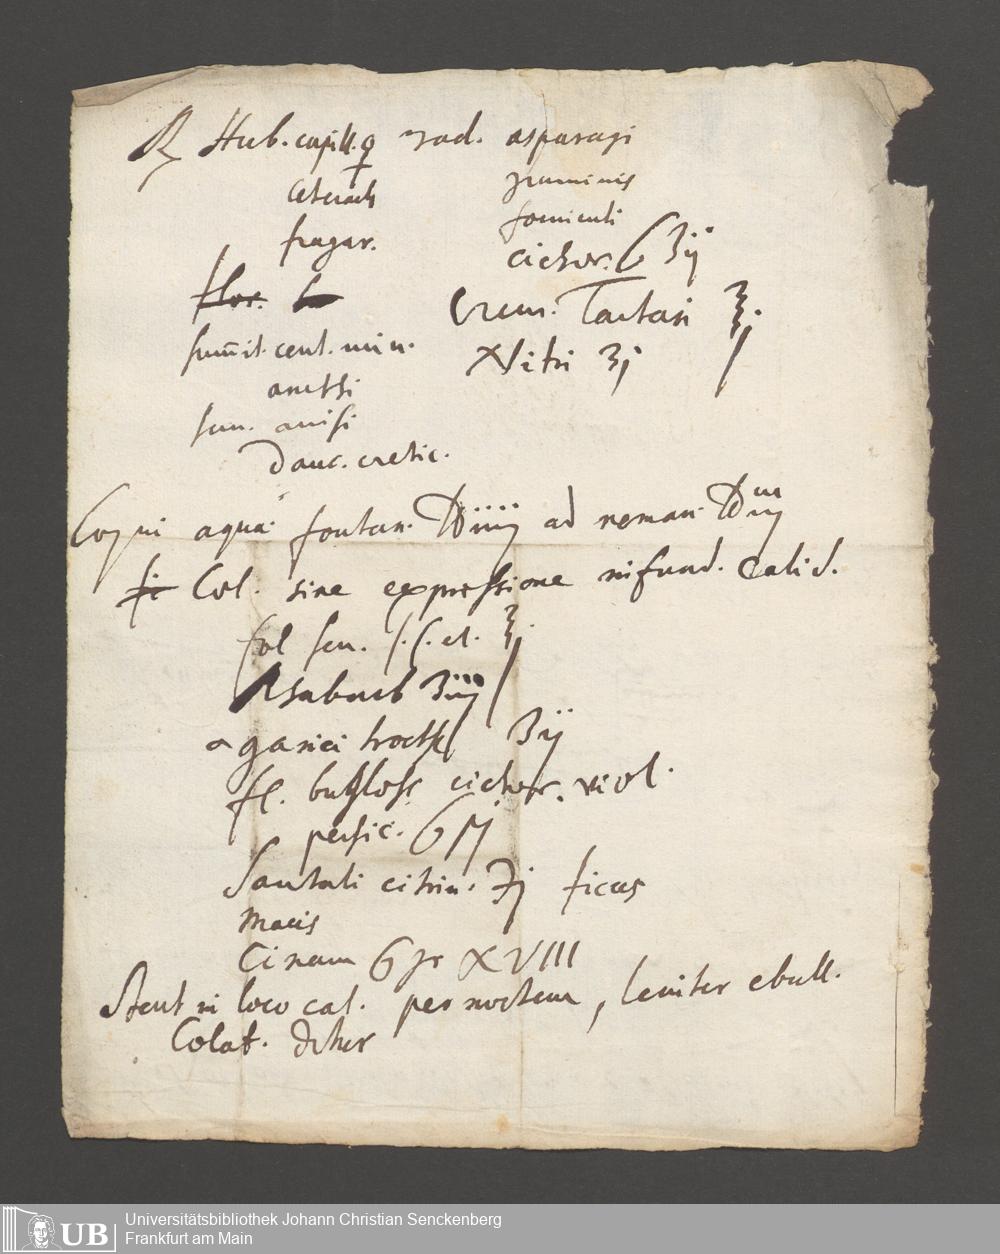 ℞ Hub. capill. ♀ rad. asparagi
ceterach graminis
foeniculi
fragar. cichor. ʒij
flor.
Crem. Tartari ℥
sum̄it. cent. min.
Nitri ʒj
anethi
sem. anisi
Dauc. cretic.
Coqu in aqua fontan. ℔iiij ad reman. ℔iij
Col. sine expressione infund. calid.
fol sen. s. s. el. ℥
Rhabarb ʒiiij
agarici troch ʒij
fl. bugloss. cichor. viol.
persic.
Santali citrin. ficus
Macis
Cinam gr XVIII
Stent in loco cal. per noctem, leniter ebull.
Colat.
UB
Universitätsbibliothek Johann Christian Senckenberg
Frankfurt am Main